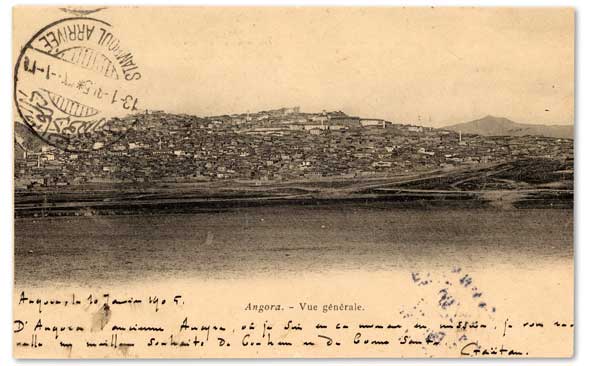 STAMBOUL ARRIVÉE
13-1
Angora. – Vue générale.
Angora, le 10 Janvier 1905.
D'Angora l'ancienne Ancyre, où je suis en ce moment en mission, je vous re-
nouvelle mes meilleurs souhaits de bonheur et de bonne santé.
Gaëtan.